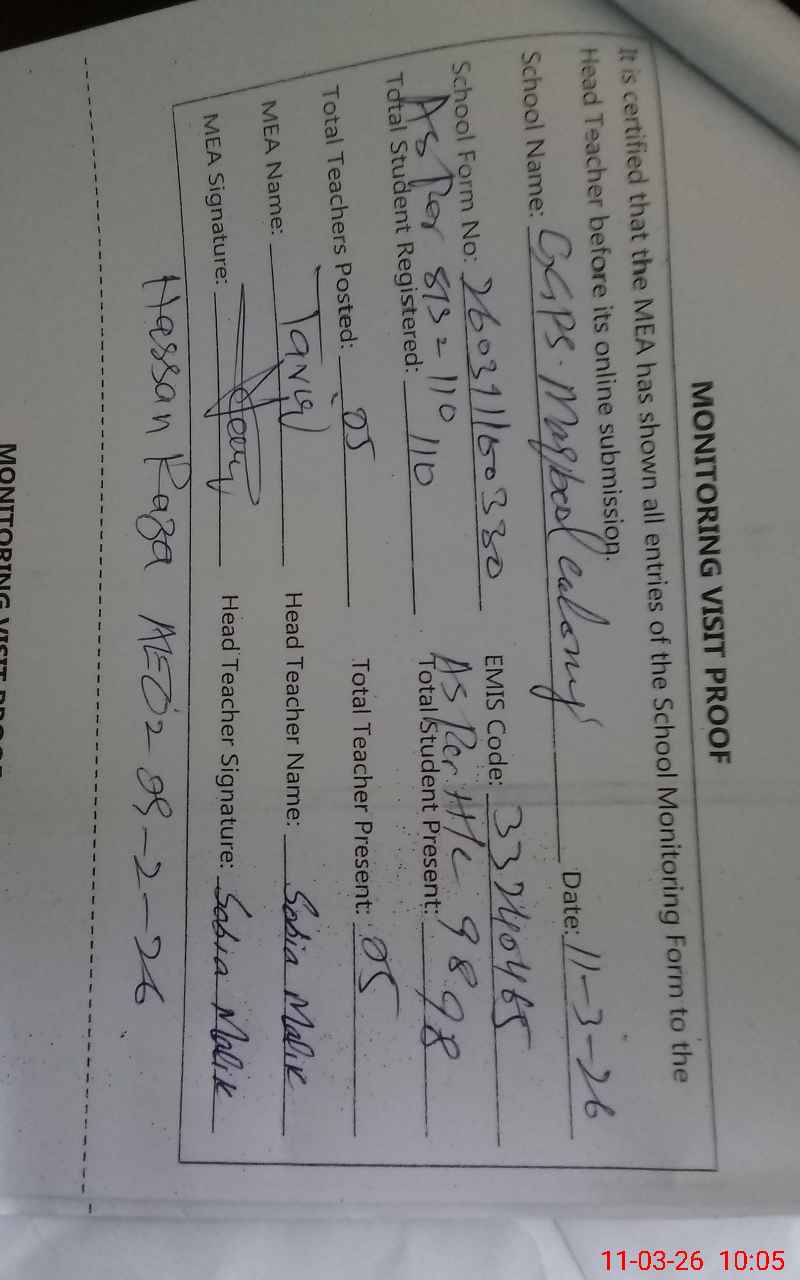 MONITORING VISIT PROOF
It is certified that the MEA has shown all entries of the School Monitoring Form to the
Head Teacher before its online submission.
School Name: GGPS. Maqbool calony Date: 11-3-26
School Form No: 26031160330 EMIS Code: 33240465
As Per SIS = 110 As Per H/C 98
Total Student Registered: 110 Total Student Present: 98
Total Teachers Posted: 05 Total Teacher Present: 05
MEA Name: Tariq Head Teacher Name: Sobia Malik
MEA Signature: Head Teacher Signature: Sobia Malik
Hassan Raza AEO = 09-2-26
MONITORING VISIT PROOF
11-03-26 10:05